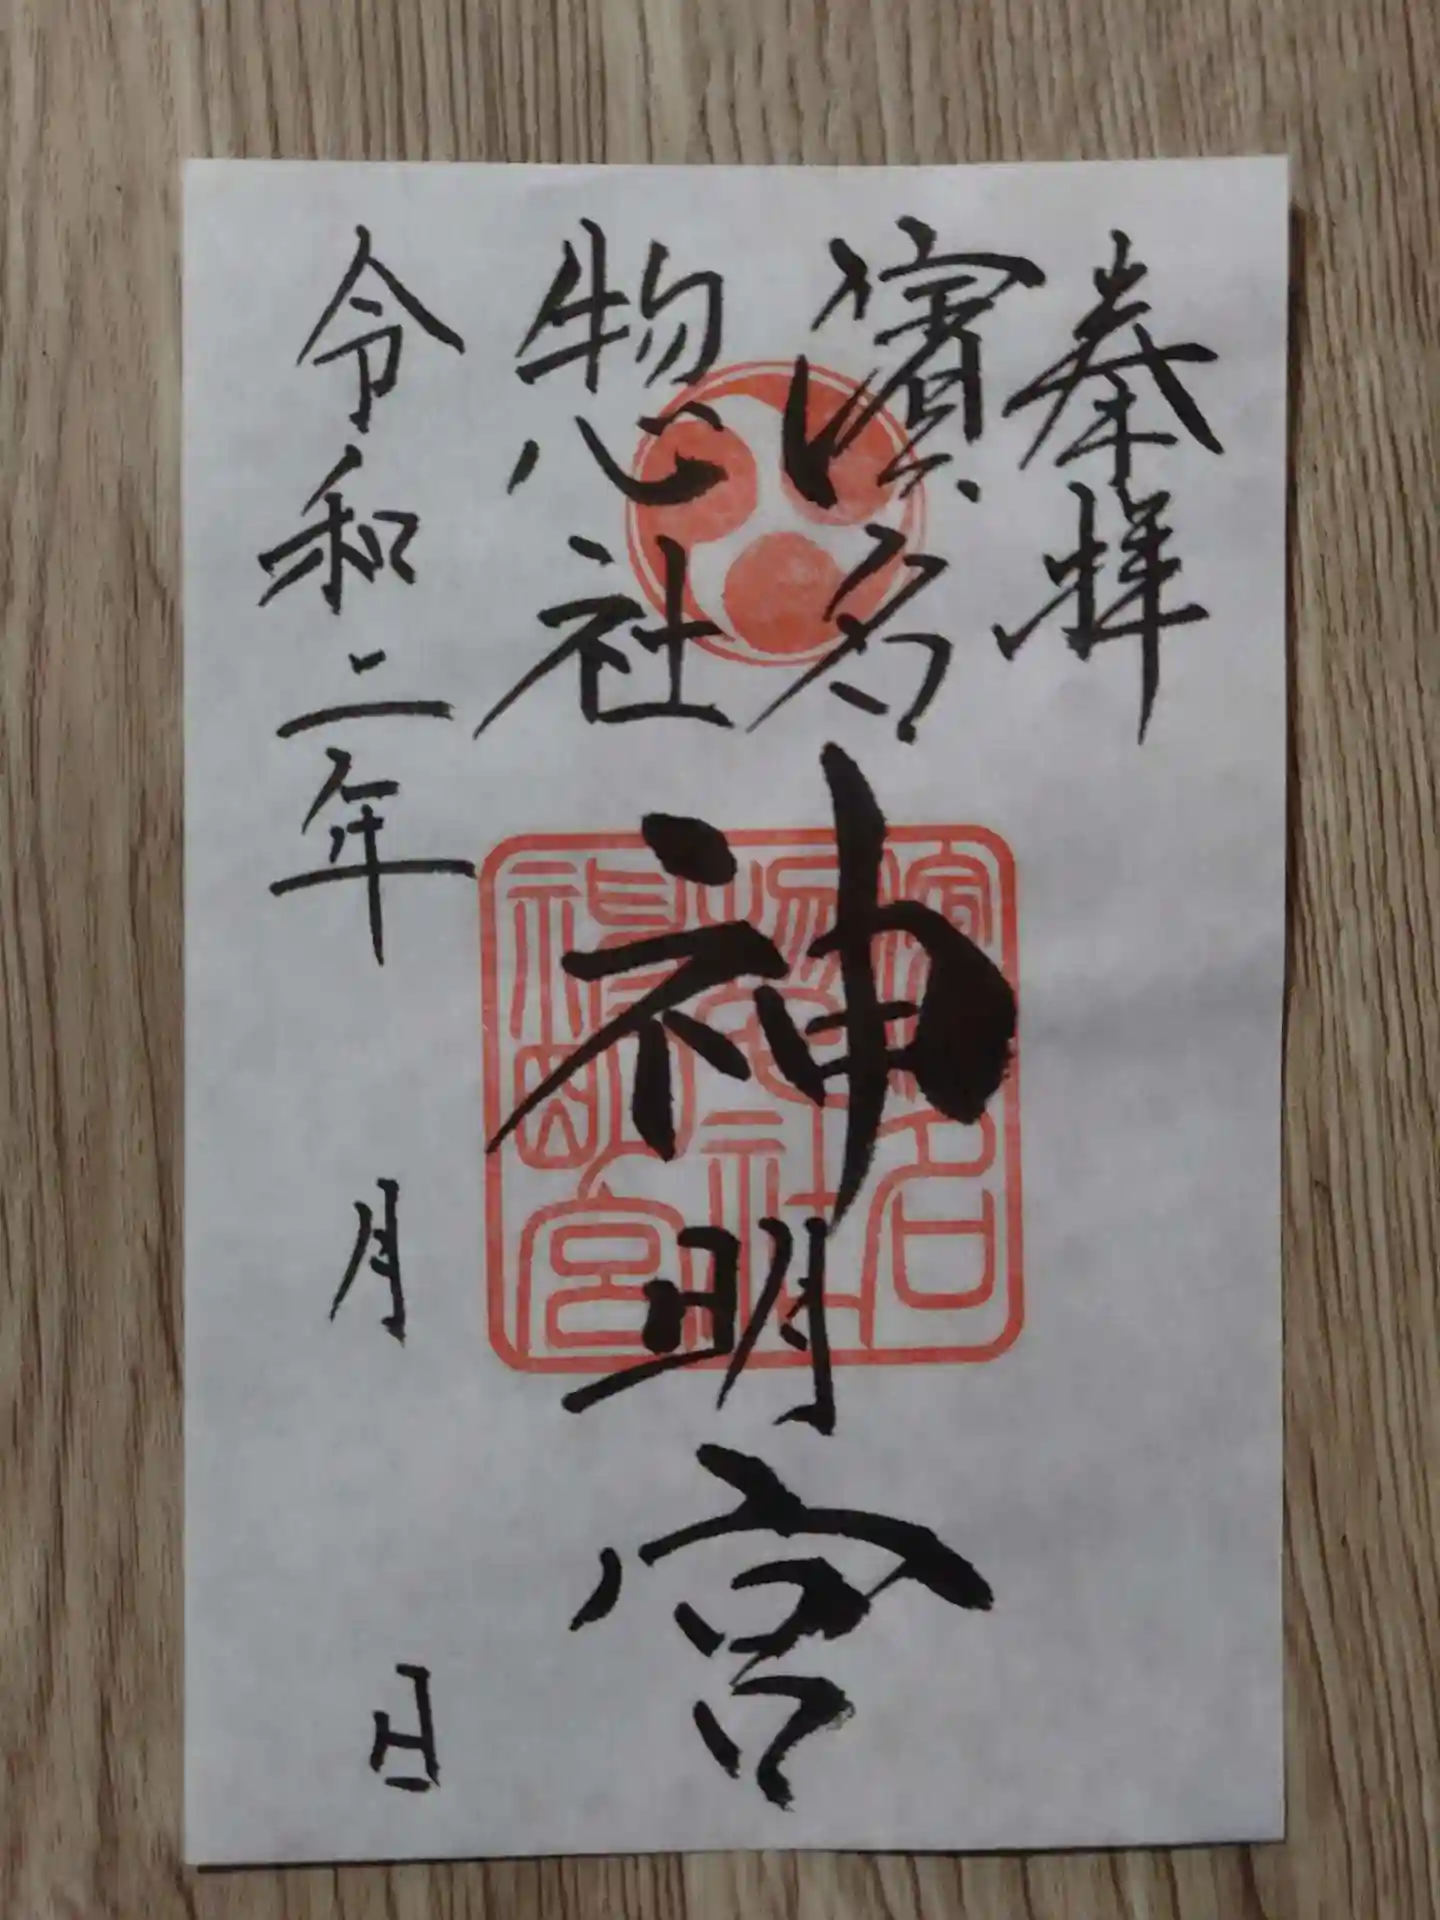 奉拝
濱名
惣社
神明宮
令和二年 月 日
濱名
惣社
神明宮